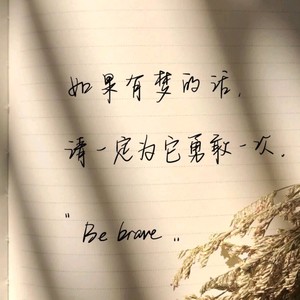 如果有梦的话,
请一定为它勇敢一次.
"Be brave„